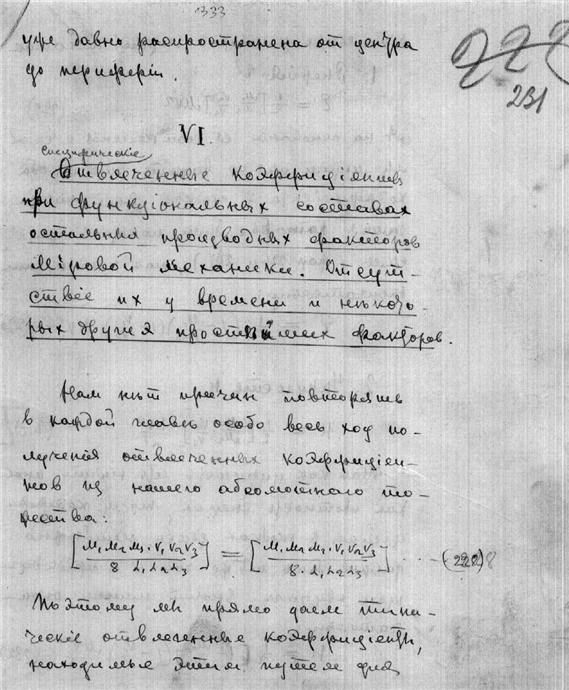 333
222
231
уже давно распространена от центра
до периферiи.
VI.
специфическiе
Отвлеченные коэффицiенты
при функцiональных составах
остальных производных факторов
Мiровой механики. Отсут-
ствiе их у времени и нѣкото-
рых других простѣйших факторов.
Нам нѣт причин повторять
в каждой главѣ особо весь ход по-
лученiя отвлеченных коэффицiен-
тов из нашего абсолютного то-
жества:
[M₁M₂M₃·V₁V₂V₃ / 8 L₁L₂L₃] = [M₁M₂M₃·V₁V₂V₃ / 8·L₁L₂L₃] ... (222) 8
Поэтому мы прямо даем типи-
ческiе отвлеченные коэффицiенты,
находимые этим путем для